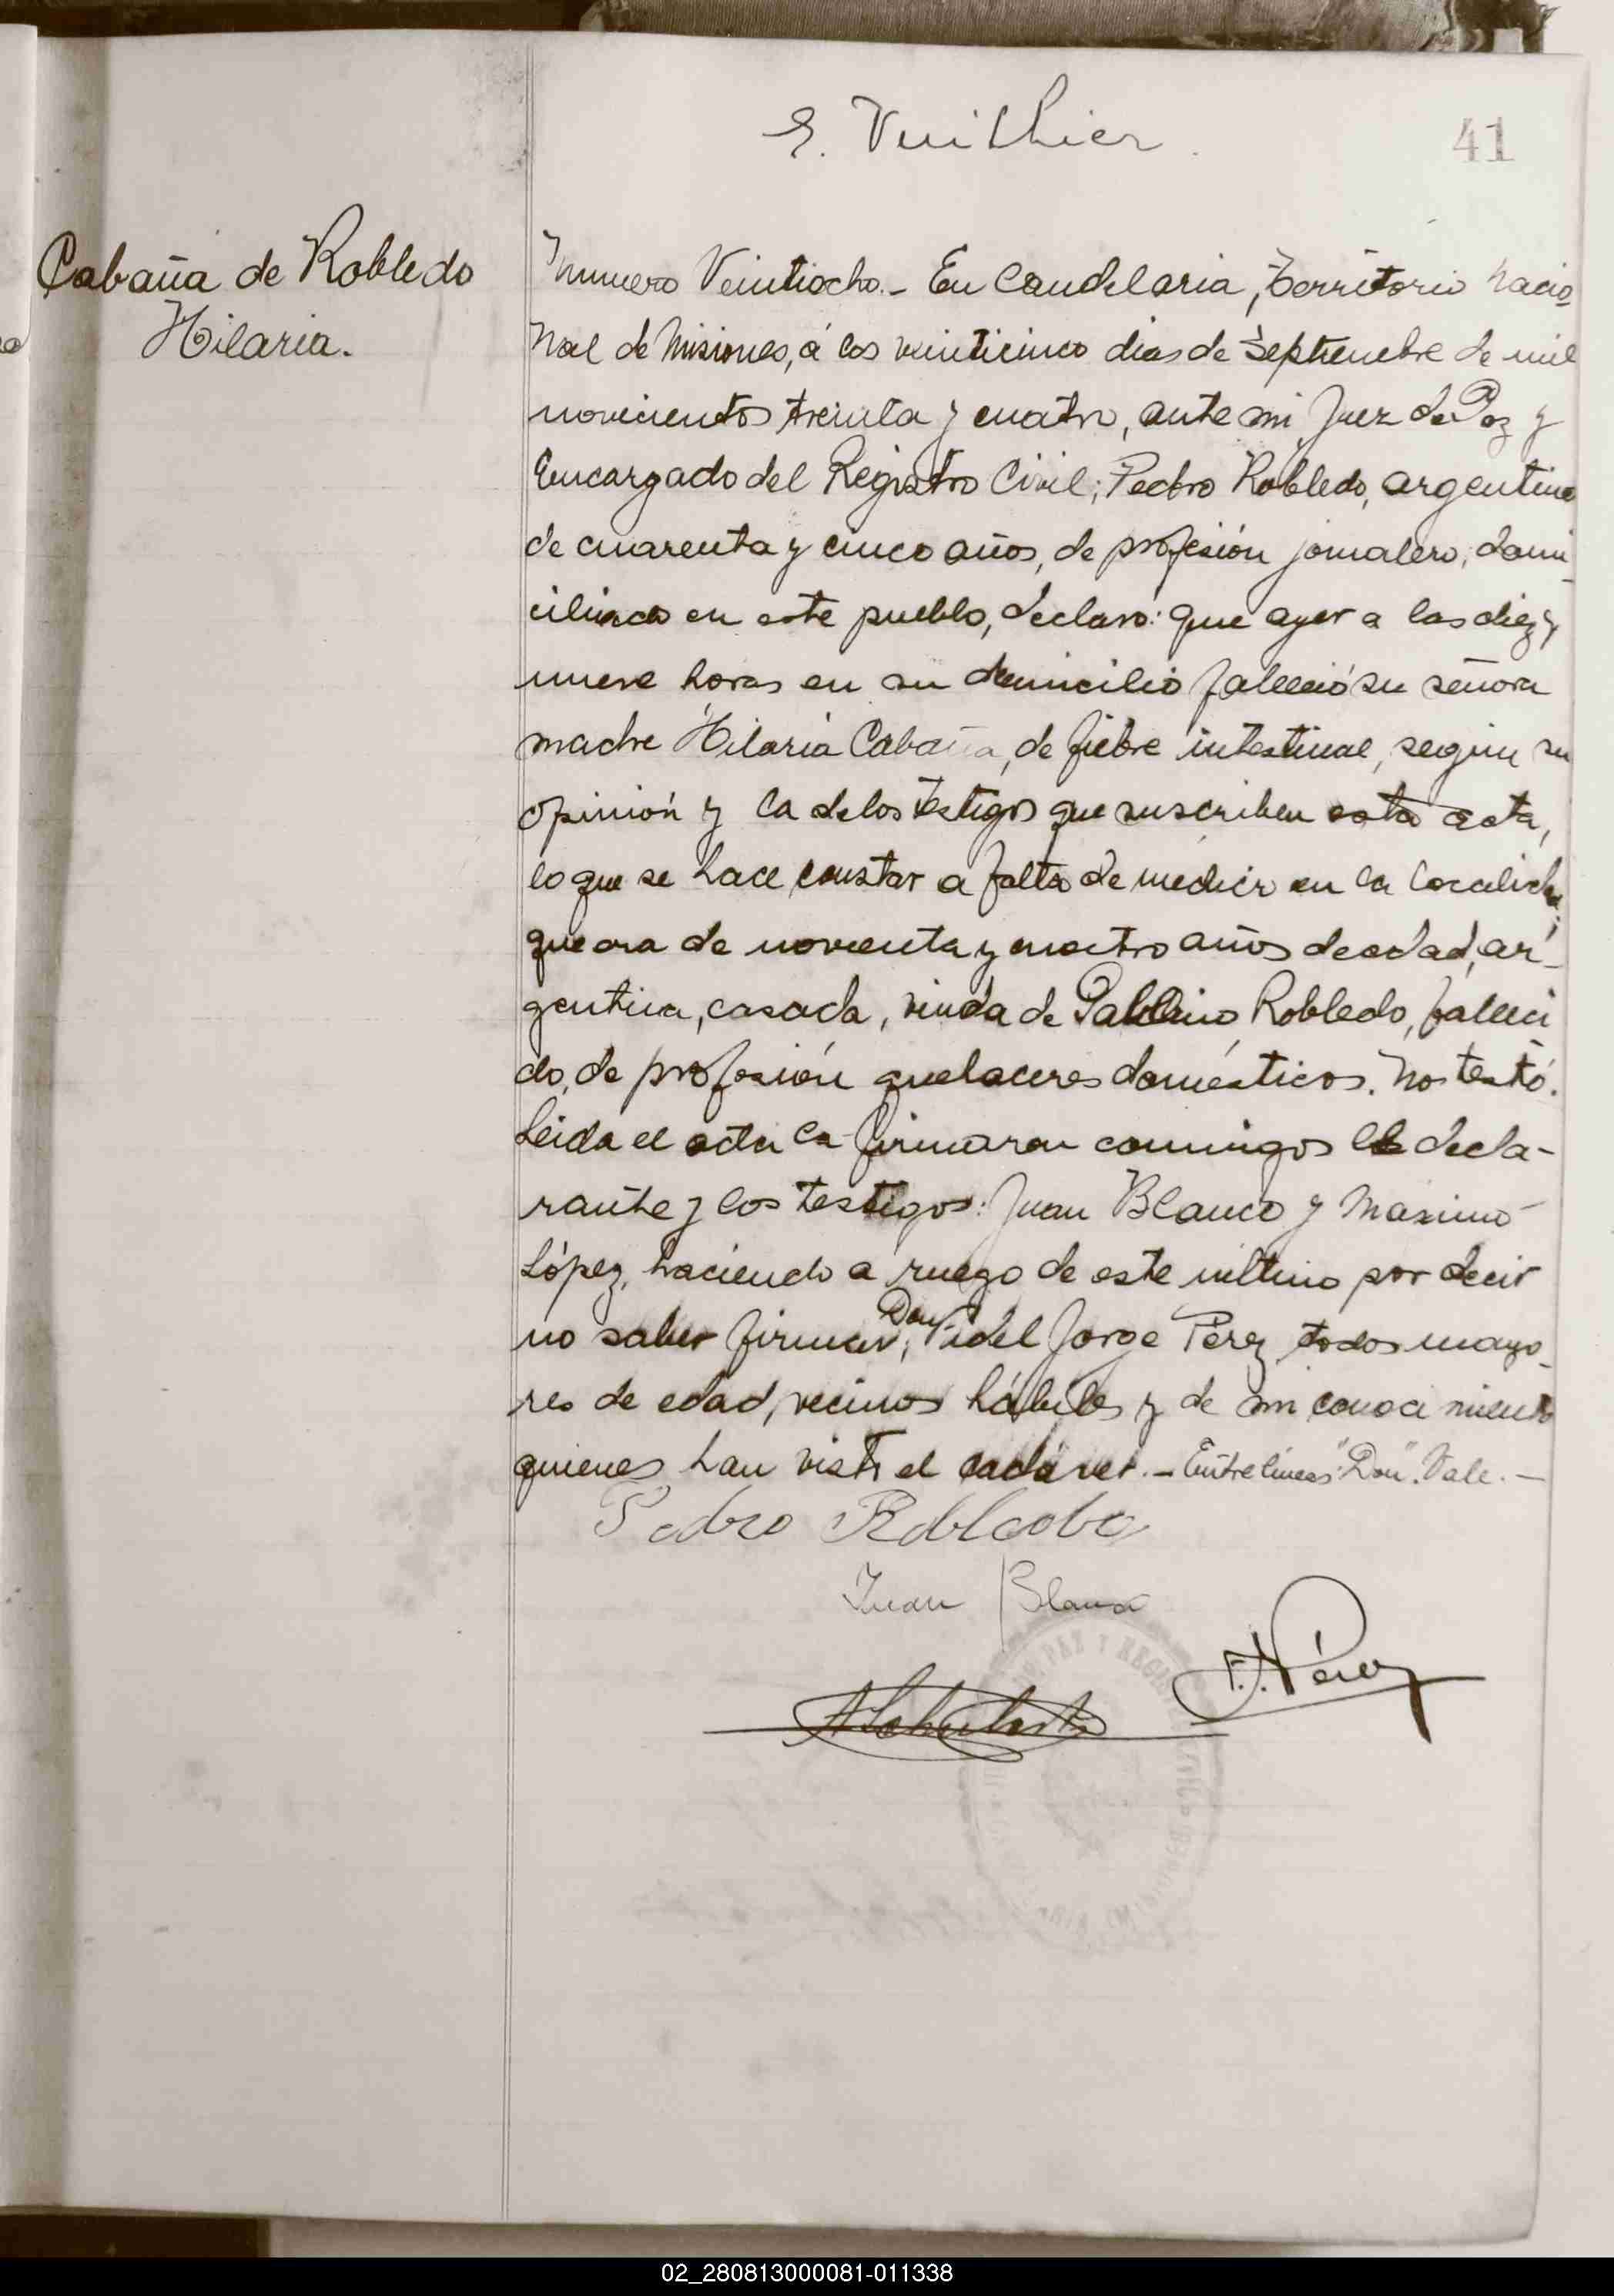 E. Vuithier
41
Cabaña de Robledo
Hilaria.
Numero Veintiocho.- En Candelaria, Territorio Nacio-
nal de Misiones, á los veinticinco dias de Septiembre de mil
novecientos treinta y cuatro, ante mi Juez de Paz y
Encargado del Registro Civil; Pedro Robledo, argentino
de cuarenta y cinco años, de profesión jornalero, domi-
ciliado en este pueblo, declaró: que ayer a las diez y
nueve horas en su domicilio falleció su señora
madre Hilaria Cabaña, de fiebre intestinal, según su
opinión y la de los testigos que suscriben esta acta,
lo que se hace constar a falta de medico en la localidad;
que era de noventa y cuatro años de edad, ar-
gentina, casada, viuda de Robledo, falleci
do, de profesión quehaceres domésticos. No testó.
Leida el acta la firmaron conmigo el decla-
rante y los testigos: Juan Blanco y Maximo
López, haciendo a ruego de este ultimo por decir
no saber firmar, Don Fidel Jorge Perez, todos mayo-
res de edad, vecinos hábiles y de mi conocimiento
quienes han visto el cadáver.- Entre lineas "Don". Vale.-
Pedro Robledo
Juan Blanco
F. J. Pérez
02_280813000081-011338